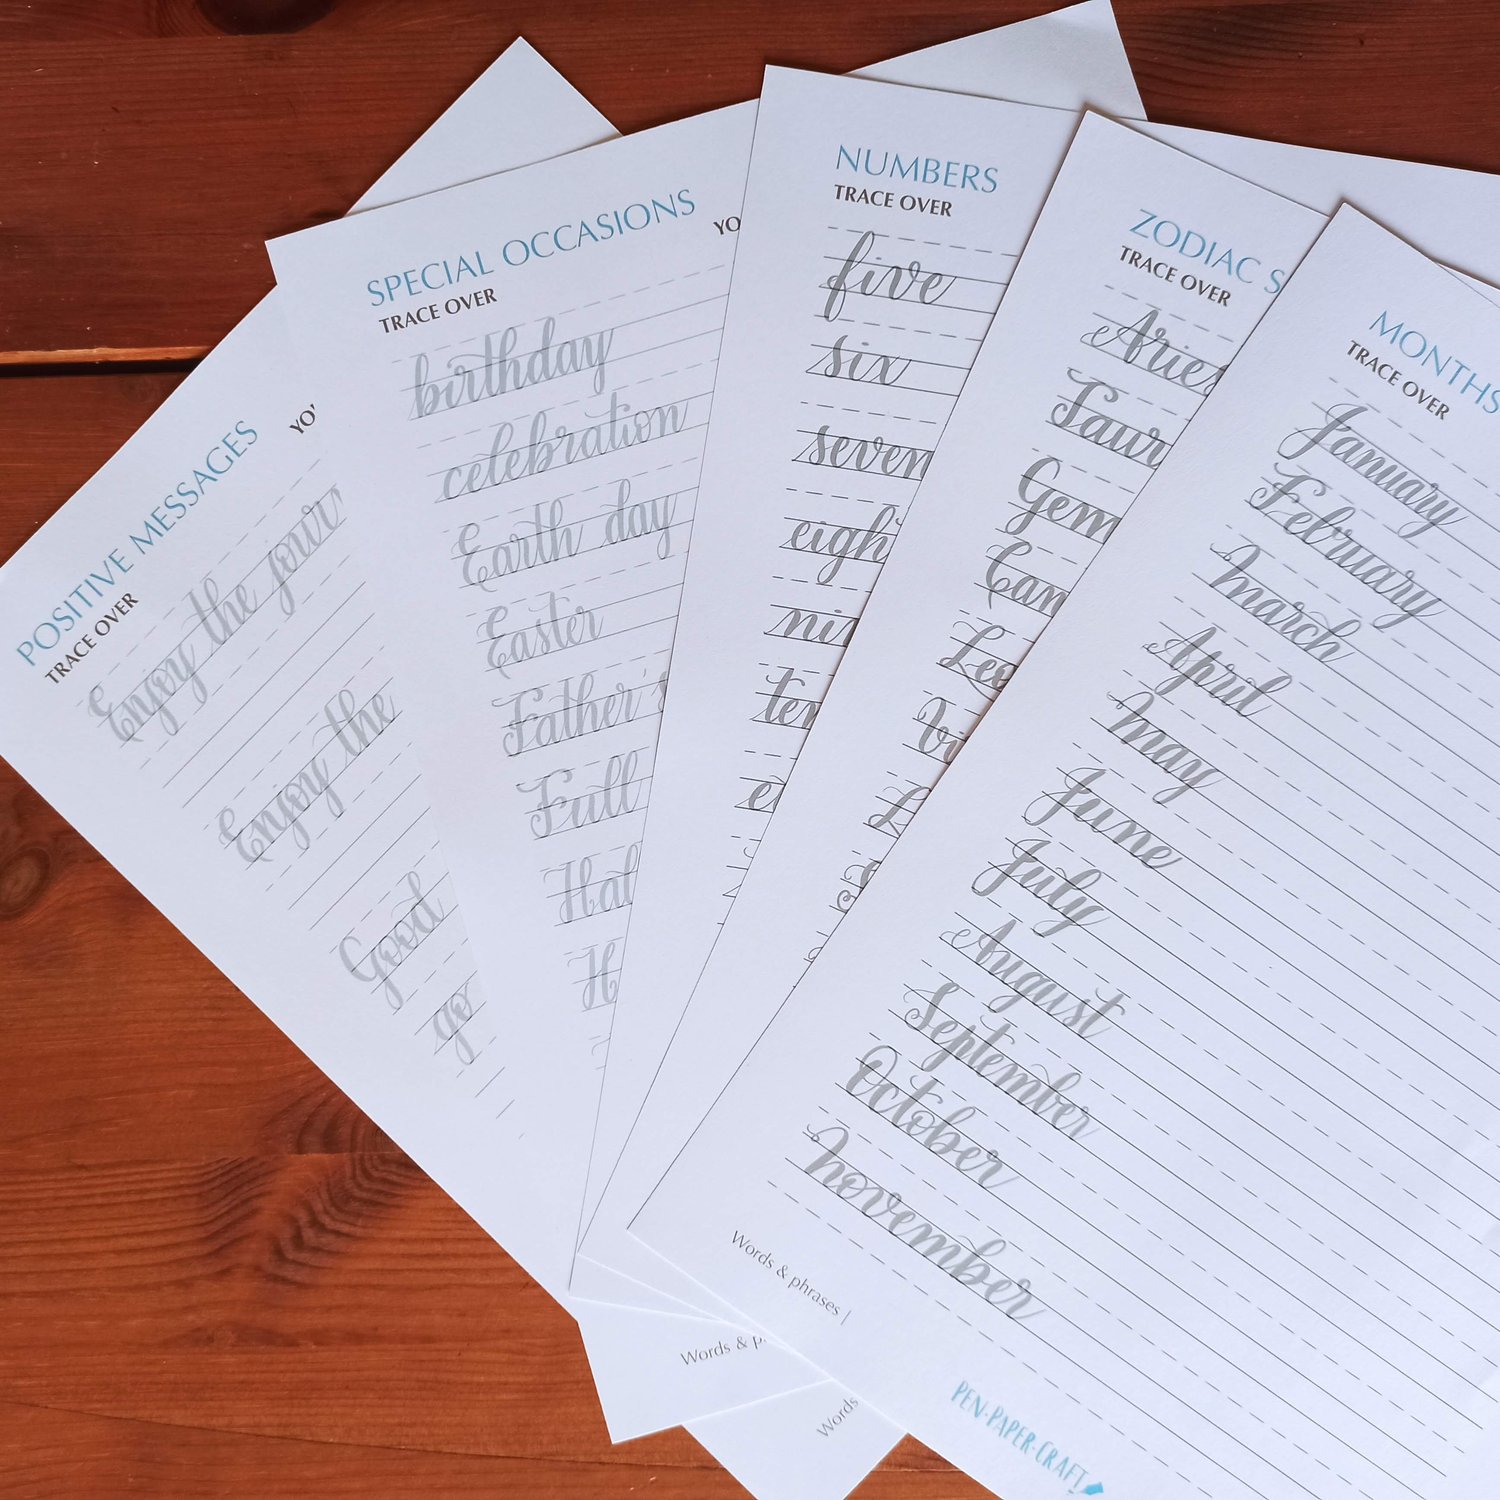 POSITIVE MESSAGES
TRACE OVER
Enjoy the
Enjoy the
Good
go
SPECIAL OCCASIONS
TRACE OVER
birthday
celebration
Earth day
Easter
Father
Full
NUMBERS
TRACE OVER
five
six
seven
ZODIAC
TRACE OVER
Aries
Leo
MONTHS
TRACE OVER
January
February
March
April
May
June
July
August
September
October
November
Words & phrases |
Words &
Words
PEN·PAPER·CRAFT